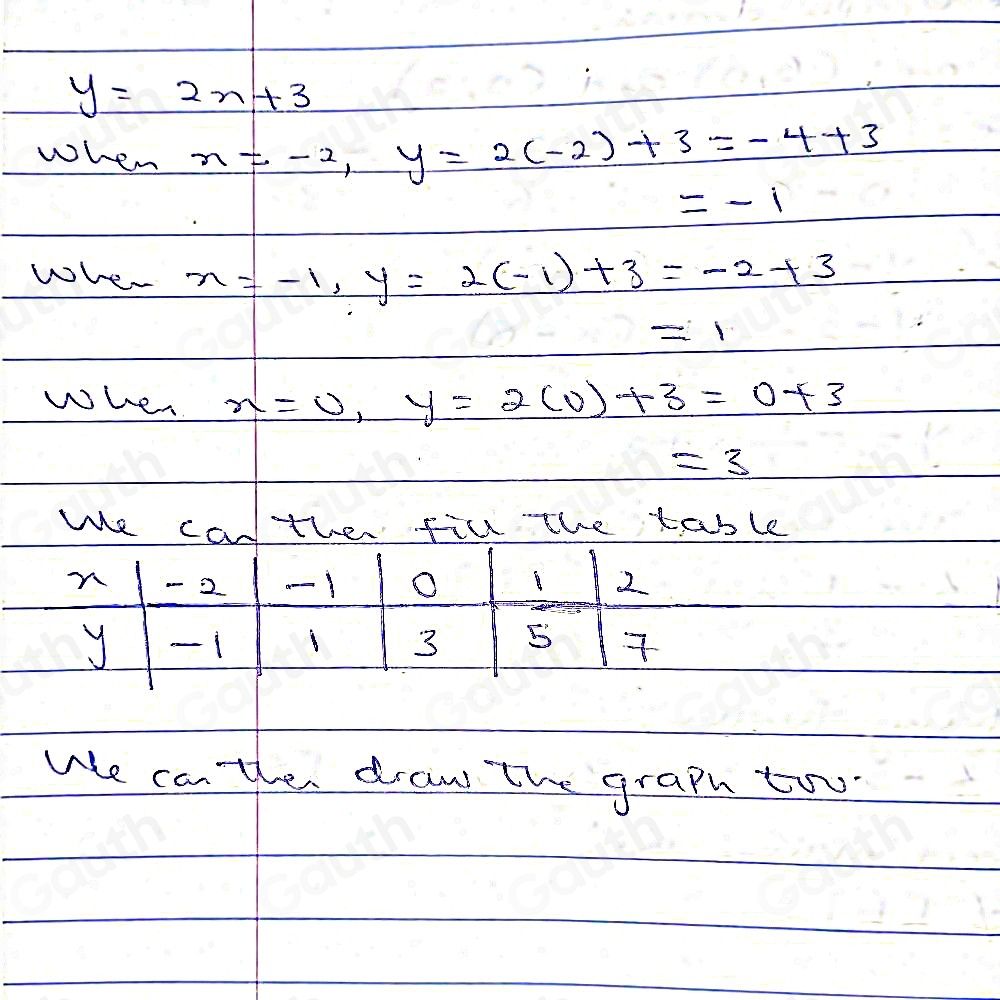 y = 2x+3
When x = -2, y = 2(-2)+3 = -4+3
= -1
When x = -1, y = 2(-1)+3 = -2+3
= 1
When x = 0, y = 2(0)+3 = 0+3
= 3
We can then fill the table
x | -2 | -1 | 0 | 1 | 2
y | -1 | 1 | 3 | 5 | 7
We can then draw the graph too.
Gauth